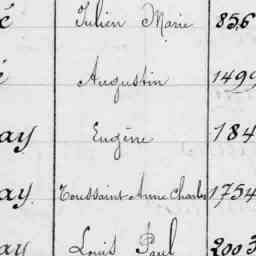 é Julien Marie 856
é Augustin 1499
ay Eugène 184
ay Toussaint Anne Charles 1754
ay Louis Paul 2003